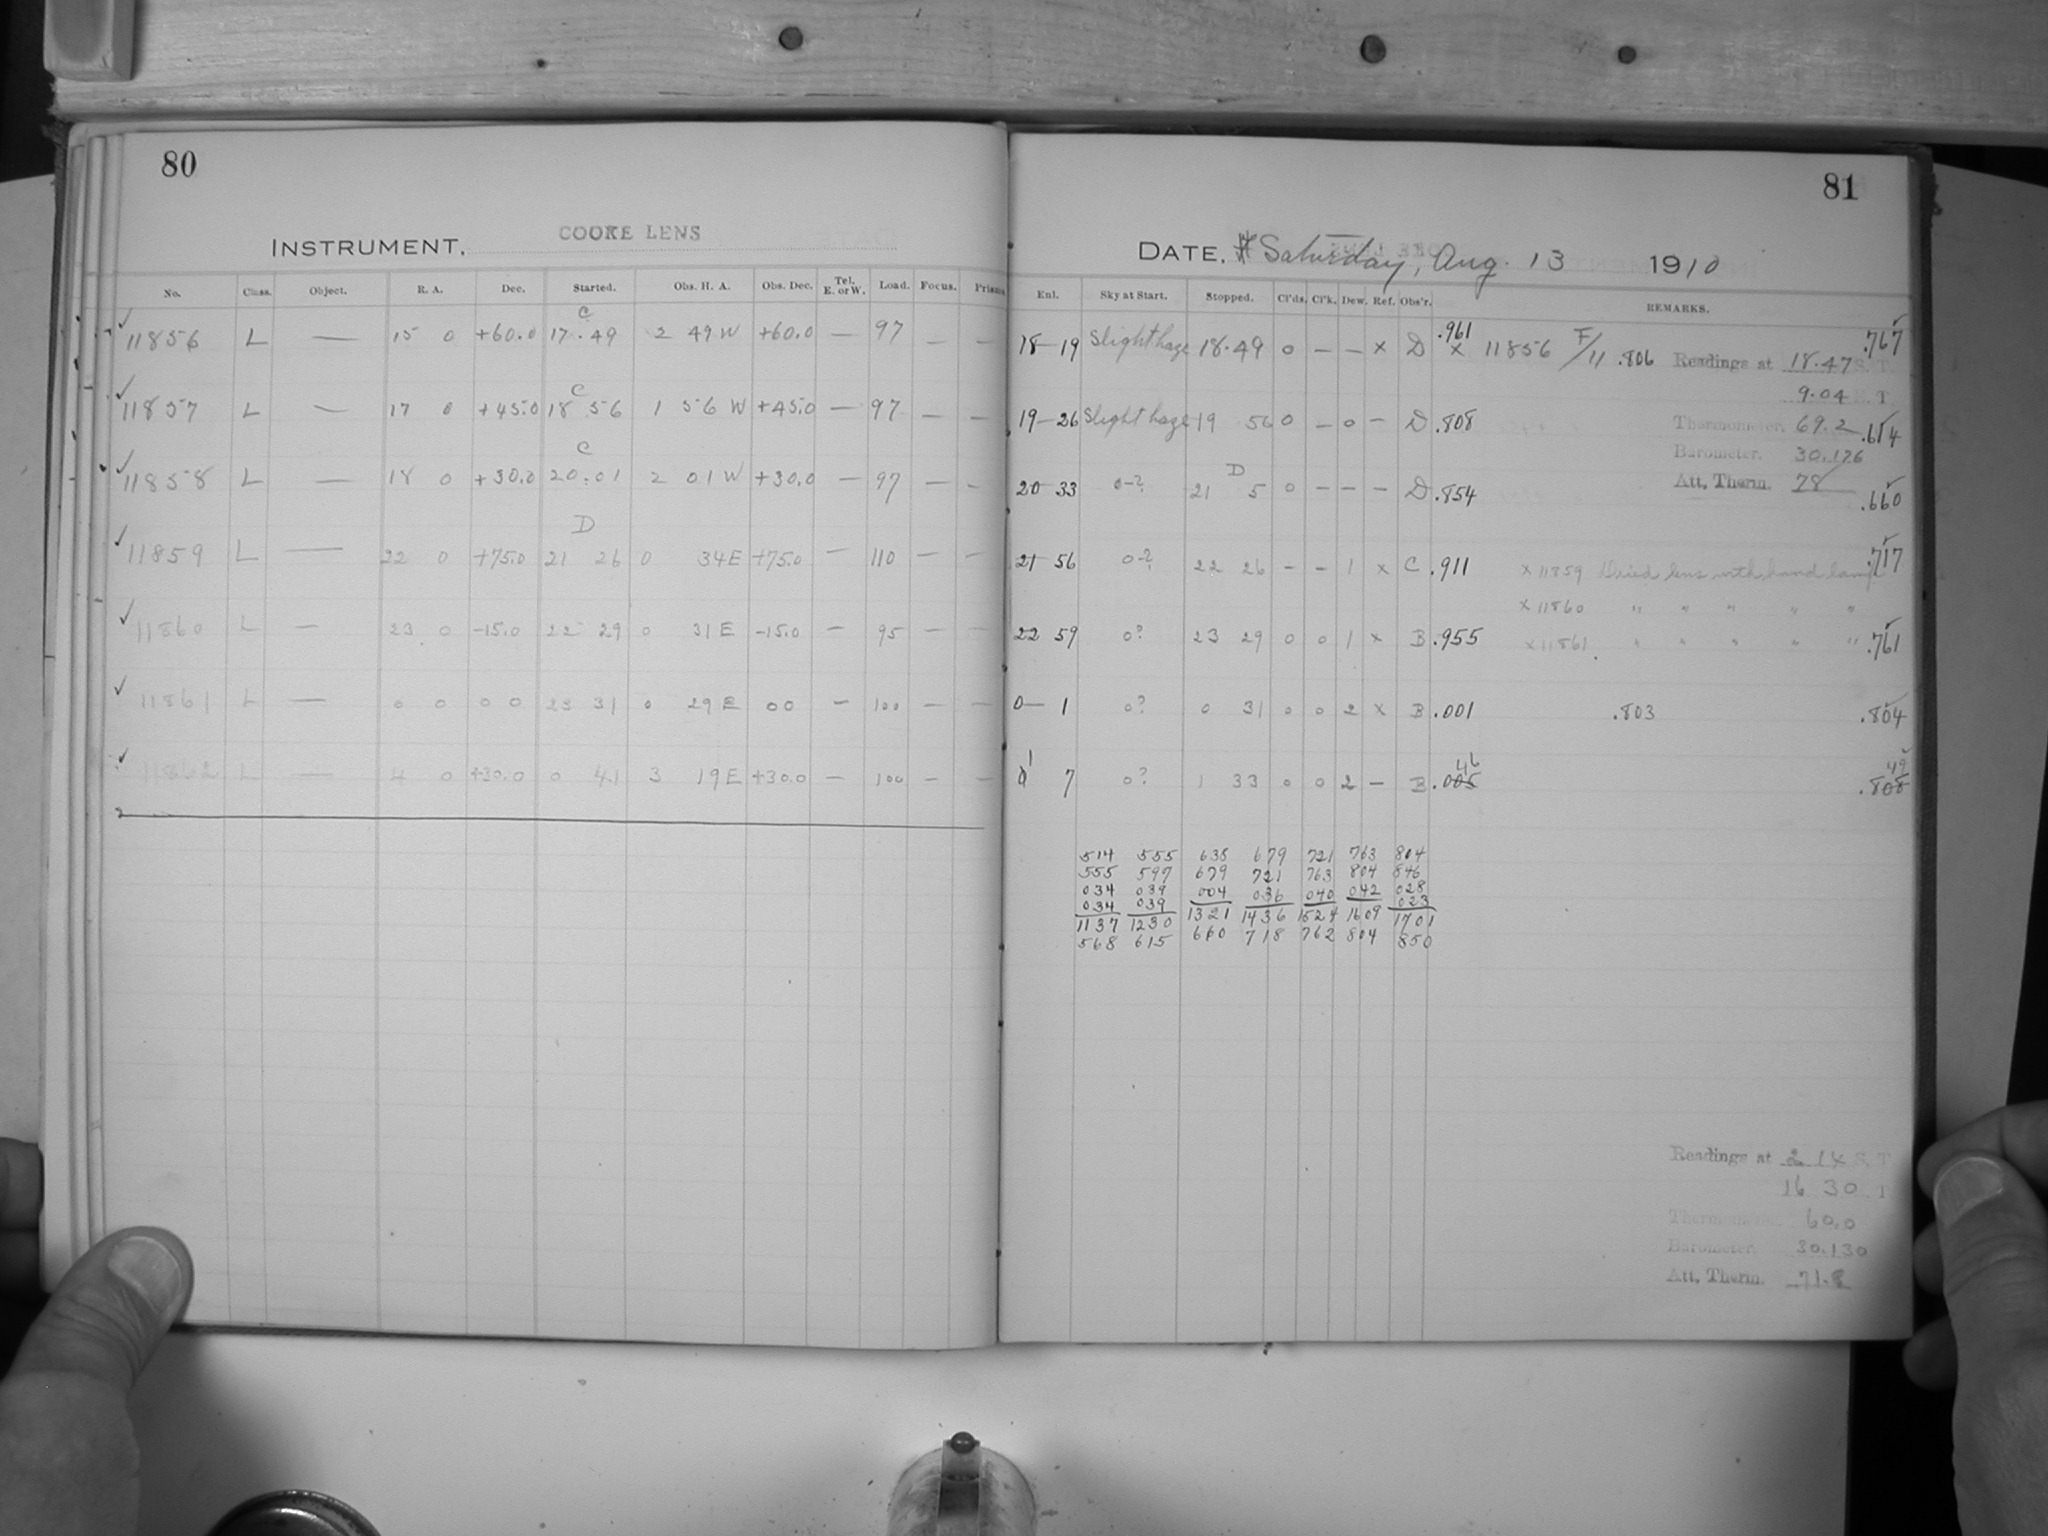 80
INSTRUMENT. COOKE LENS
No. Class. Object. R. A. Dec. Started. Obs. H. A. Obs. Dec. Tel. E. or W. Load. Focus. Prisms
C
✓ 11856 L — 15 0 +60.0 17.49 2 49 W +60.0 — 97 — —
C
✓ 11857 L — 17 0 +45.0 18 56 1 56 W +45.0 — 97 — —
C
✓ 11858 L — 18 0 +30.0 20.01 2 01 W +30.0 — 97 — —
D
✓ 11859 L — 22 0 +75.0 21 26 0 34 E +75.0 — 110 — —
✓ 11860 L — 23 0 -15.0 22 29 0 31 E -15.0 — 95 — —
✓ 11861 L — 0 0 0 0 23 31 0 29 E 00 — 100 — —
✓ 11862 L — 4 0 +30.0 0 41 3 19 E +30.0 — 100 — —
81
DATE. Saturday, Aug. 13 1910
Enl. Sky at Start. Stopped. Cl'ds. Cl'k. Dew. Ref. Obs'r. REMARKS.
18—19 Slight haze 18.49 0 — — x D .961 x 11856 F/11 .806 .767
Readings at 18.47 S. T.
9.04 . T
19—26 Slight haze 19 56 0 — 0 — D .808 Thermometer. 69.2 .614
Barometer. 30.126
D
20 33 0-? 21 5 0 — — — D .854 Att. Therm. 78 .660
21 56 0-? 22 26 — — 1 x C .911 x 11859 Dried lens with hand lamp .717
x 11860 " " " " "
22 59 0? 23 29 0 0 1 x B .955 x 11861 " " " " " .761
0— 1 0? 0 31 0 0 2 x B .001 .803 .804
1 46 49
0 7 0? 1 33 0 0 2 — B .005 .808
514 555 638 679 721 763 804
555 597 679 721 763 804 846
034 039 004 036 040 042 028
034 039 023
1137 1230 1321 1436 1524 1609 1701
568 615 660 718 762 804 850
Readings at 2 14 S. T
16 30 . T
Thermometer. 60.0
Barometer. 30.130
Att. Therm. 71.8